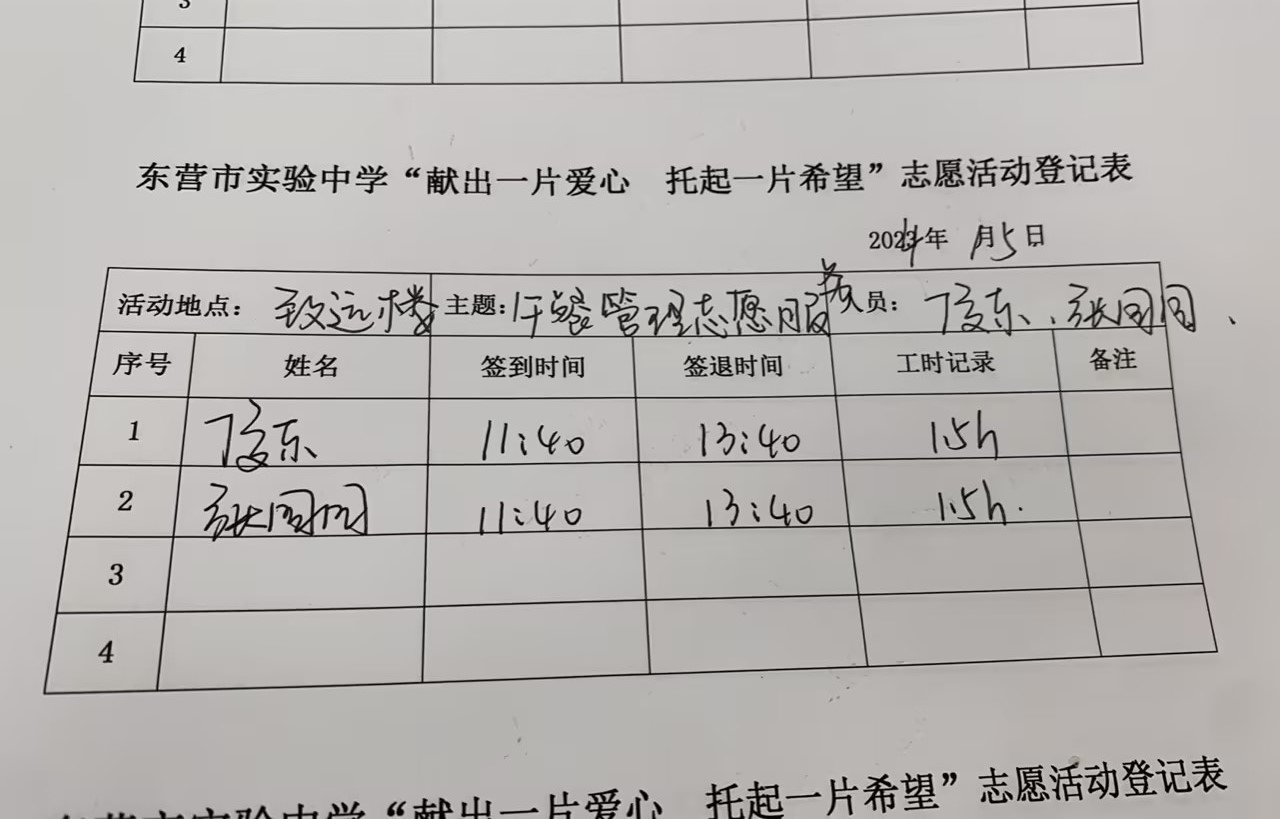 3
4
东营市实验中学“献出一片爱心 托起一片希望”志愿活动登记表
2024年 月5日
活动地点：致远楼 主题：午餐管理志愿服务 人员：丁彦东、张囡囡、
序号 姓名 签到时间 签退时间 工时记录 备注
1 丁彦东 11:40 13:40 1.5h
2 张囡囡 11:40 13:40 1.5h.
3
4
东营市实验中学“献出一片爱心 托起一片希望”志愿活动登记表